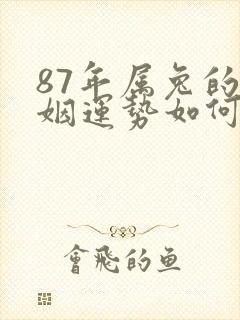 87年属兔的
姻運勢如何
會飛的鱼